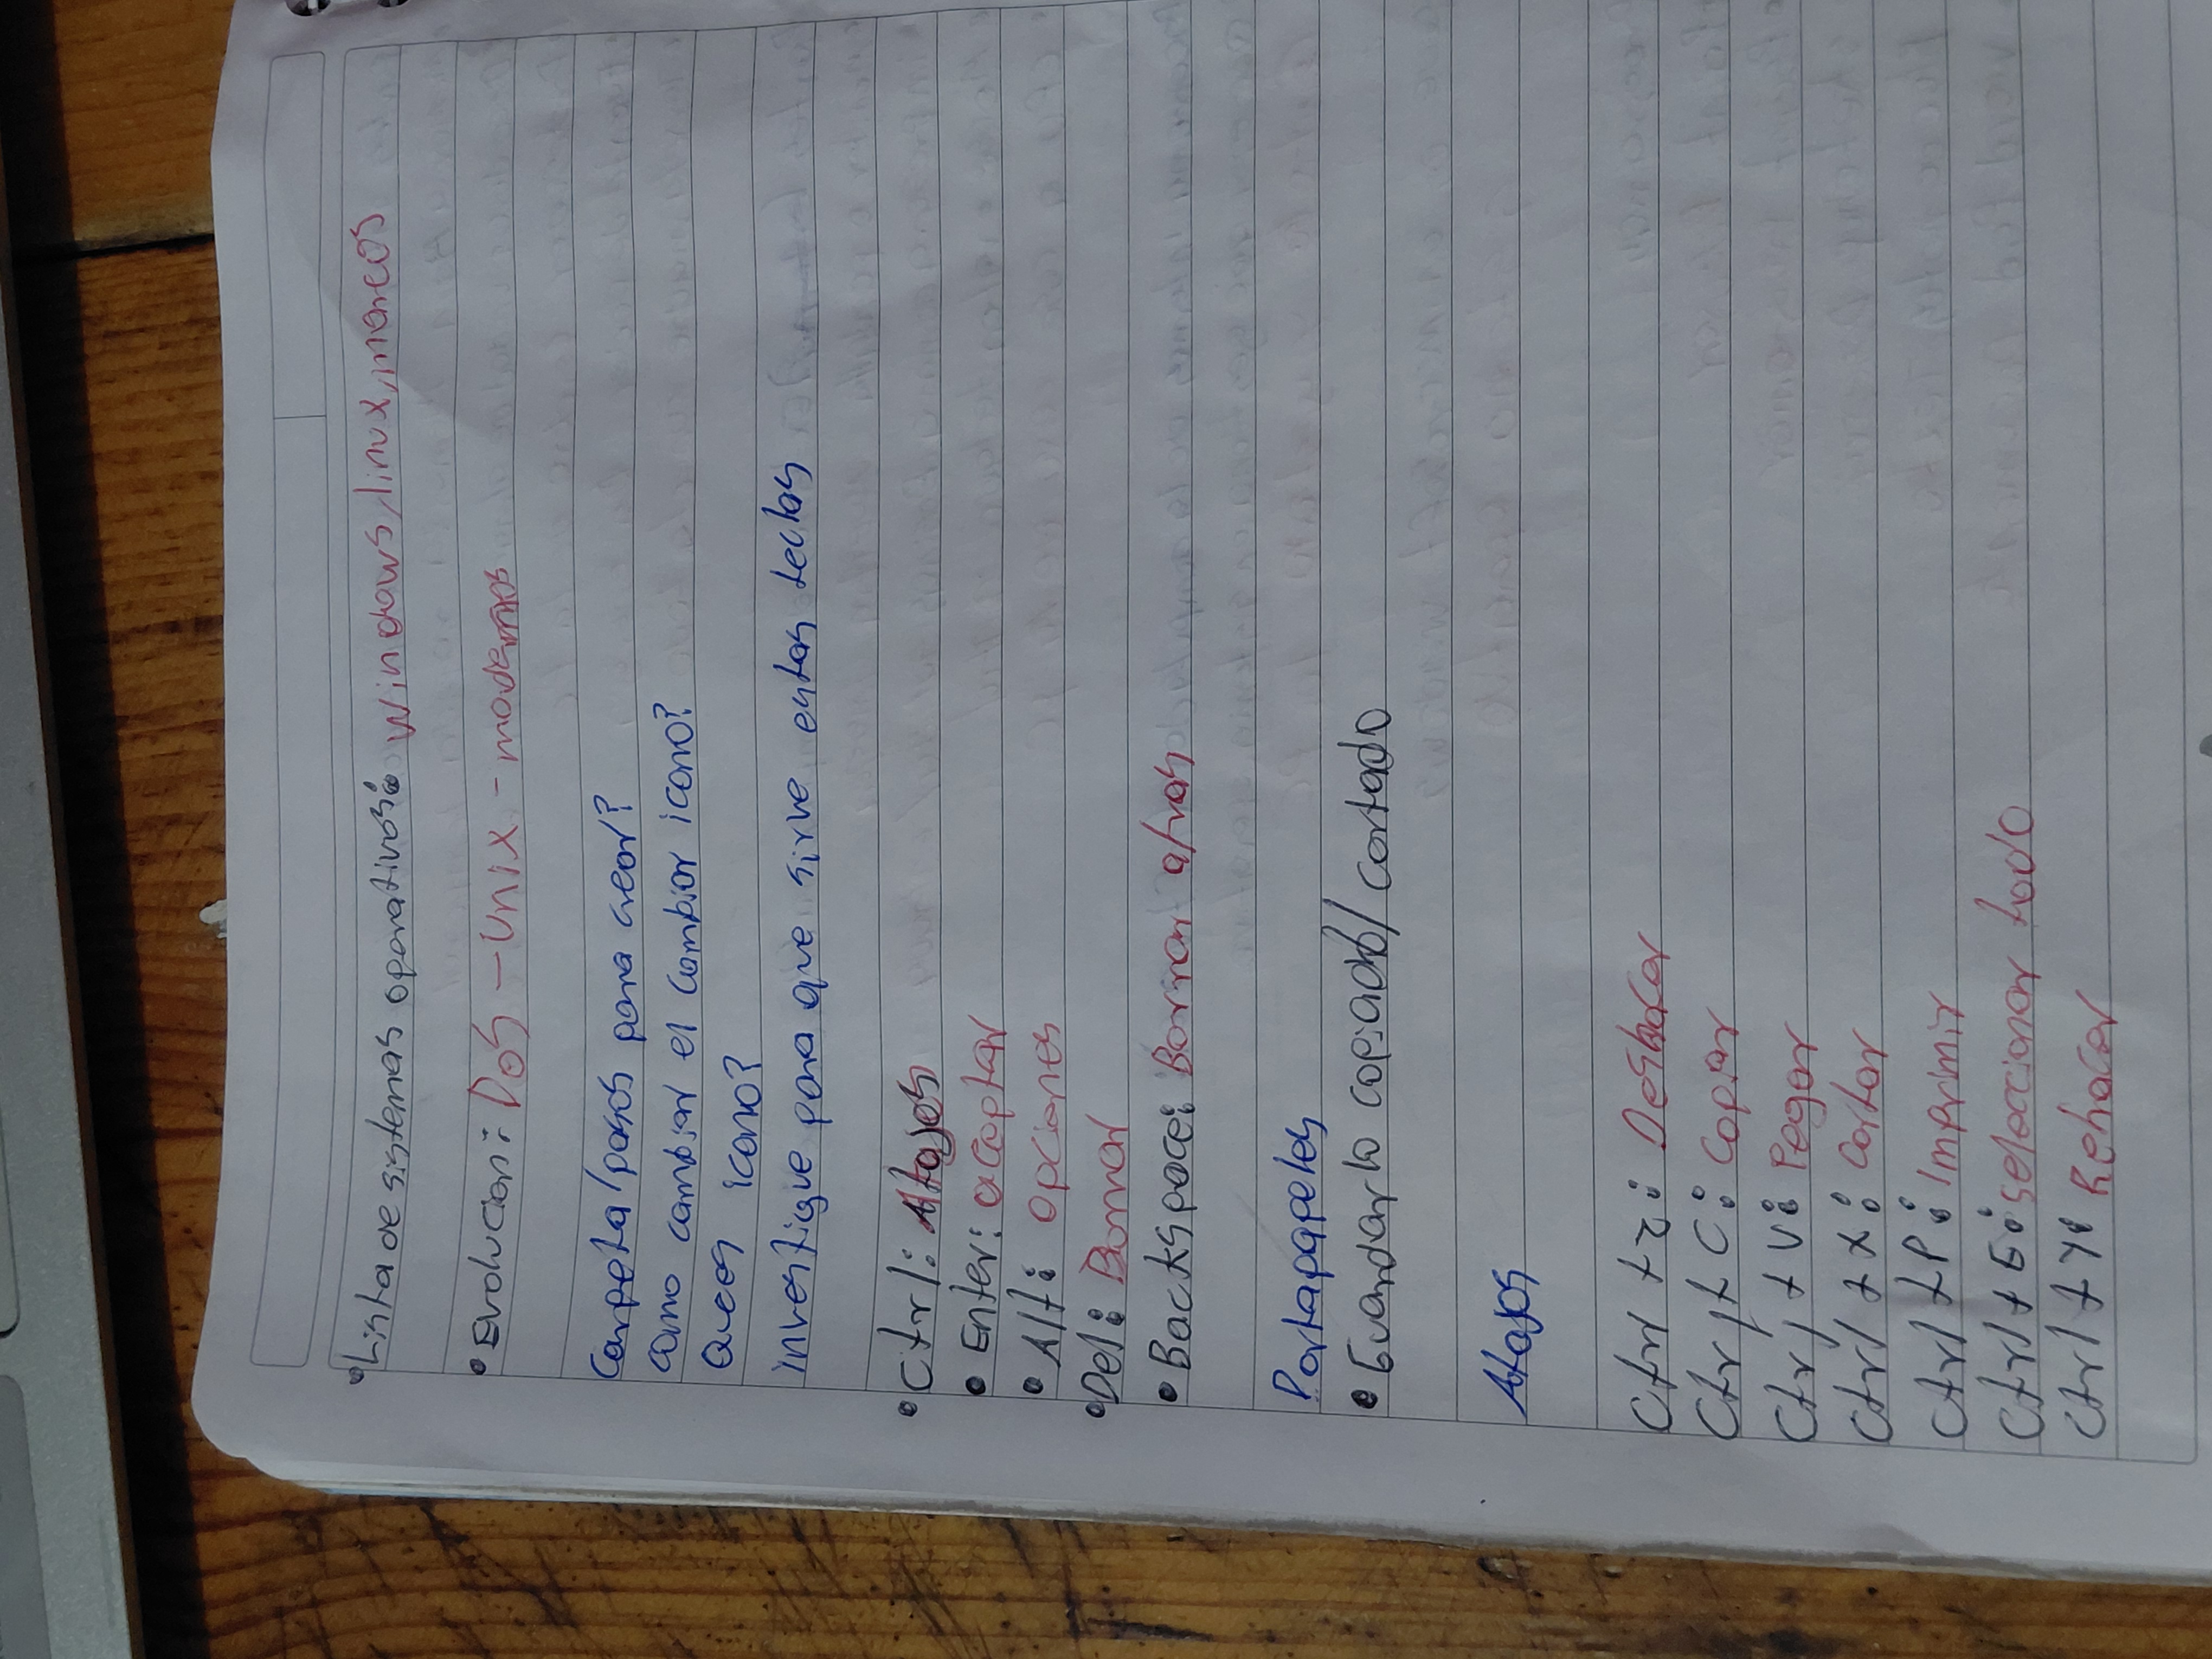 • Lista de sistemas operativos: Windows, linux, macos
• Evolucion: Dos - Unix - modernos
Carpeta/pasos para crear?
Como cambiar el cambior icono?
Que es icono?
Investigue para que sirve estas teclas
• Ctrl: Atajos
• Enter: aceptar
• Alt: opciones
• Del: Borrar
• Backspace: Borrar atras
Portapapeles
• Guardar lo copiado/cortado
Atajos
Ctrl + z: Deshacer
Ctrl + C: Copiar
Ctrl + V: Pegar
Ctrl + x: Cortar
Ctrl + P: Imprimir
Ctrl + E: seleccionar todo
Ctrl + y: Rehacer